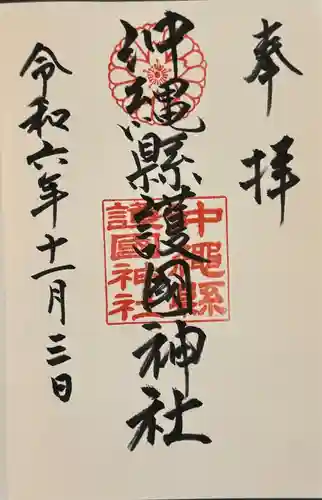 奉拝
沖縄縣護國神社
沖縄縣
護國神社
令和六年十一月三日